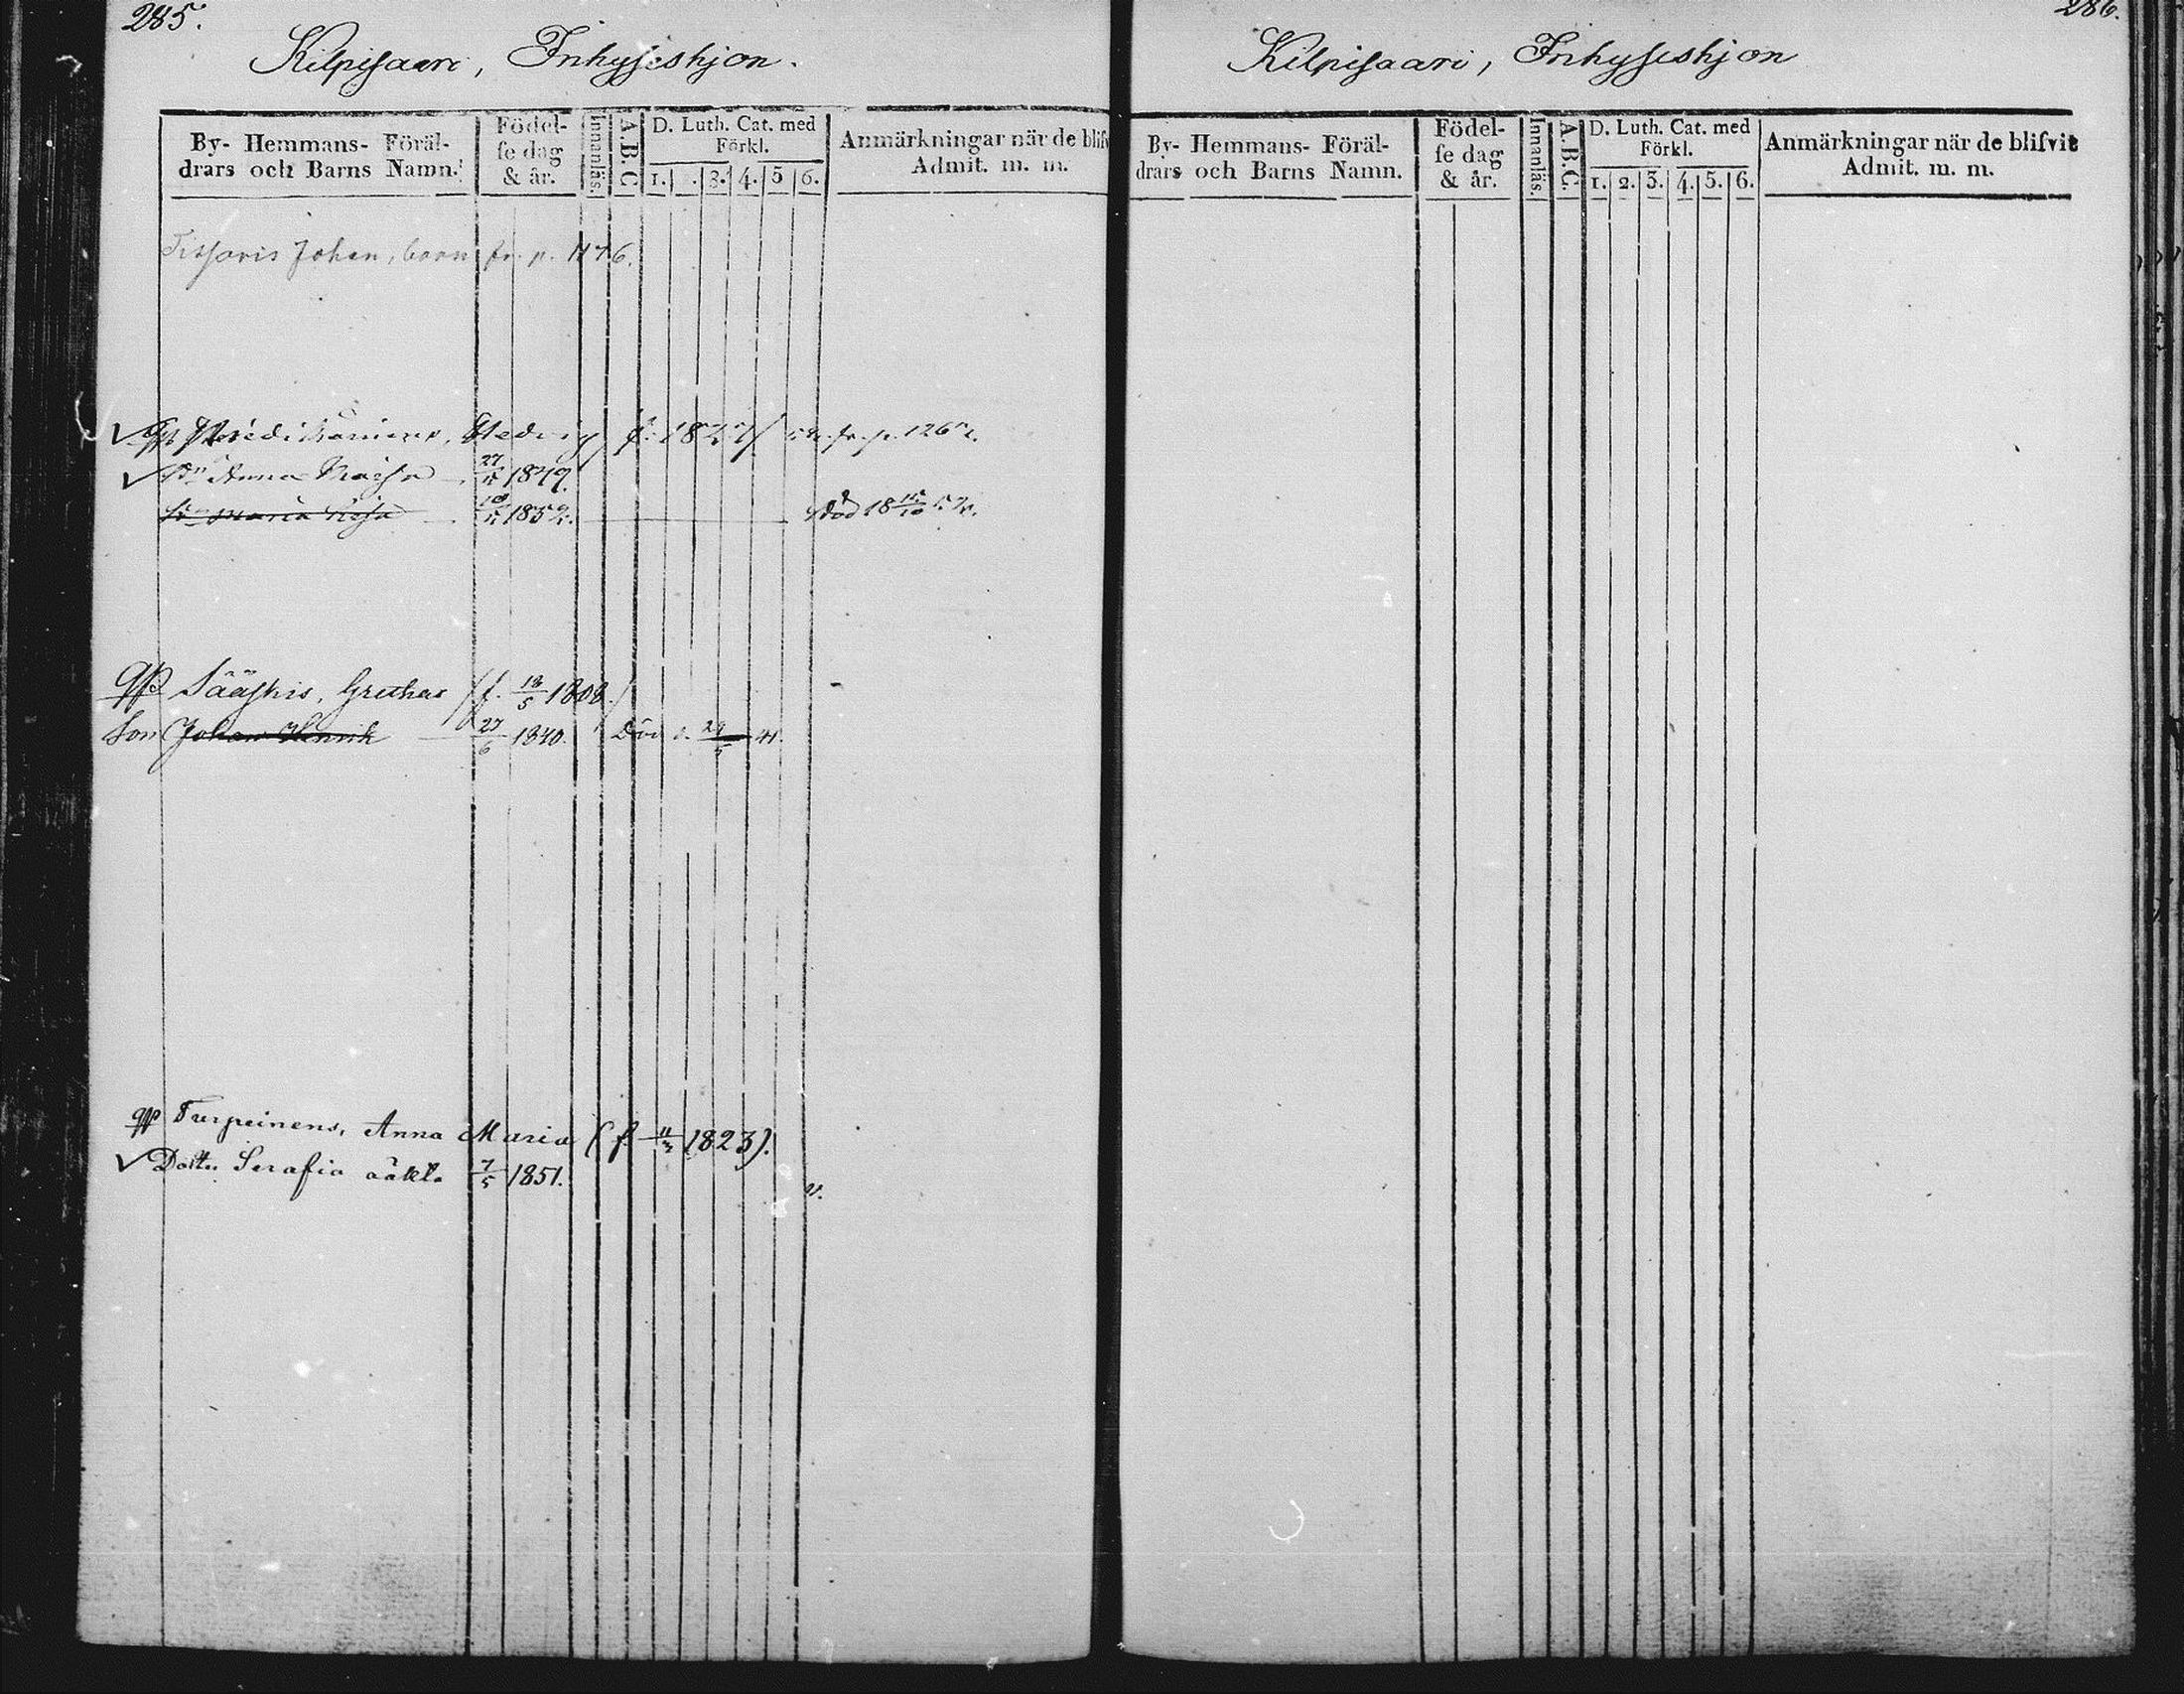 285.
Kilpisaari, Inhyseshjon.
By- Hemmans- Föräl-
drars och Barns Namn.
Födel-
se dag
& år.
Innanläs.
A.B.C
D. Luth. Cat. med
Förkl.
1. 3. 4. 5 6.
Anmärkningar när de blifv
Admit. m. m.
Johan, barn fr. p. 1176.
Hedvig f. 1827 fr. p. 1267.
Anna Maija 27/ 1849.
Maria 1852. död 18
qvp Sääskis, Grethas (f. 18/5 1808.)
Son Johan Henrik 27/6 1840. Död d. 29/5 41.
qvp Turpeinens, Anna Maria (f. 11/3 1823).
√ Dotter Serafia oäkta 7/5 1851. v.
286.
Kilpisaari, Inhyseshjon
By- Hemmans- Föräl-
drars och Barns Namn.
Födel-
se dag
& år.
Innanläs.
A.B.C.
D. Luth. Cat. med
Förkl.
1. 2. 3. 4. 5. 6.
Anmärkningar när de blifvit
Admit. m. m.